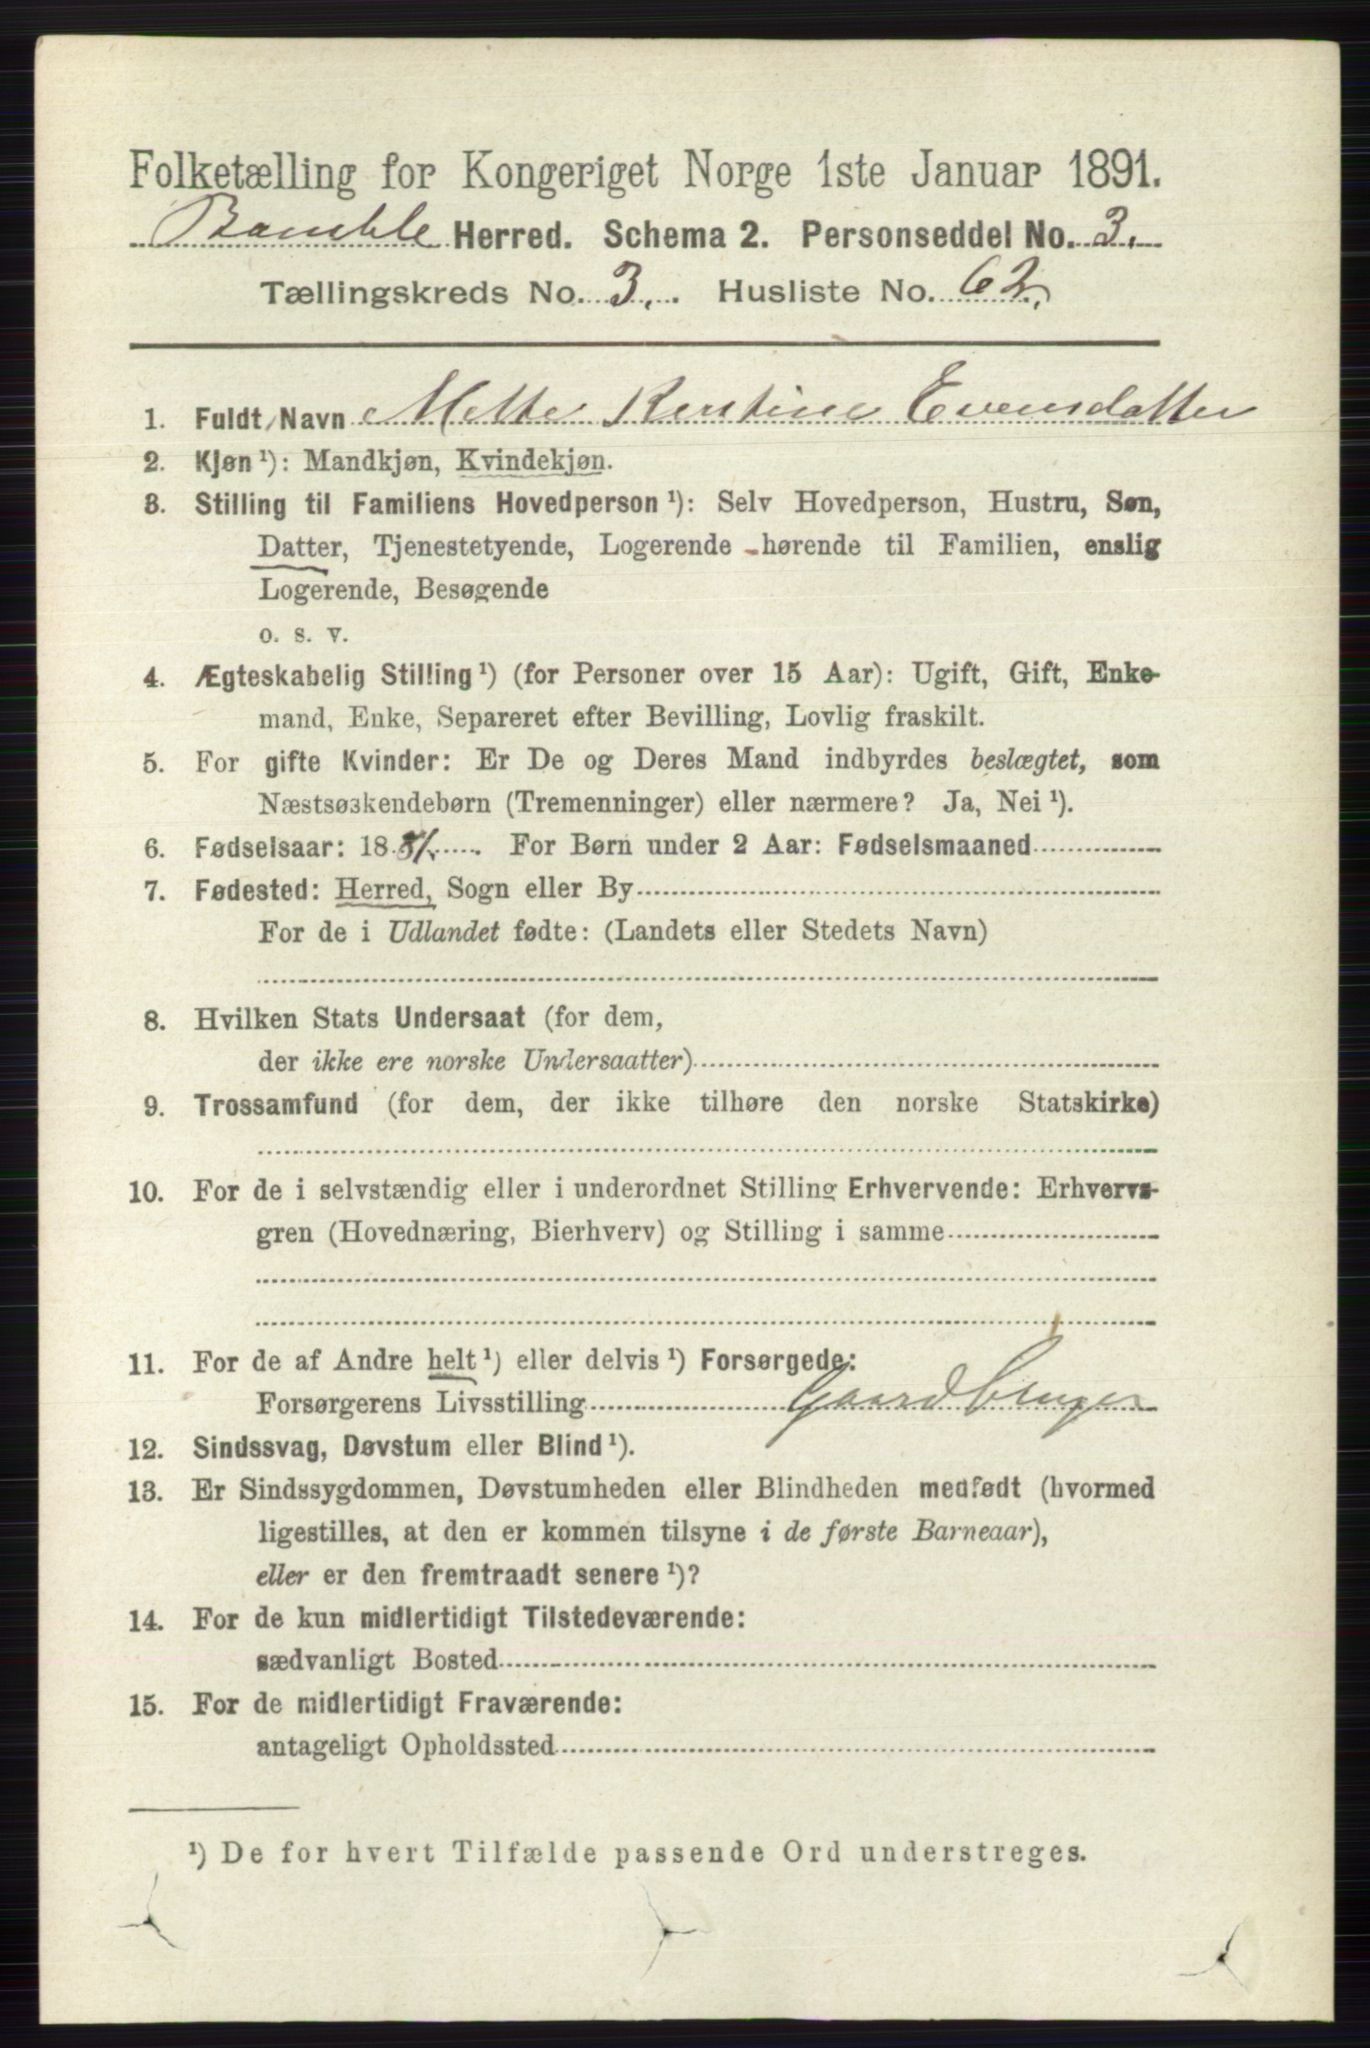 Folketælling for Kongeriget Norge 1ste Januar 1891.
Bamble Herred. Schema 2. Personseddel No. 3.
Tællingskreds No. 3. Husliste No. 62.
1. Fuldt Navn Mette Kirstine Evensdatter
2. Kjøn¹): Mandkjøn, Kvindekjøn.
3. Stilling til Familiens Hovedperson¹): Selv Hovedperson, Hustru, Søn,
Datter, Tjenestetyende, Logerende hørende til Familien, enslig
Logerende, Besøgende
o. s. v.
4. Ægteskabelig Stilling¹) (for Personer over 15 Aar): Ugift, Gift, Enke-
mand, Enke, Separeret efter Bevilling, Lovlig fraskilt.
5. For gifte Kvinder: Er De og Deres Mand indbyrdes beslægtet, som
Næstsøskendebørn (Tremenninger) eller nærmere? Ja, Nei¹).
6. Fødselsaar: 1881. For Børn under 2 Aar: Fødselsmaaned
7. Fødested: Herred, Sogn eller By
For de i Udlandet fødte: (Landets eller Stedets Navn)
8. Hvilken Stats Undersaat (for dem,
der ikke ere norske Undersaatter)
9. Trossamfund (for dem, der ikke tilhøre den norske Statskirke)
10. For de i selvstændig eller i underordnet Stilling Erhvervende: Erhvervs-
gren (Hovednæring, Bierhverv) og Stilling i samme
11. For de af Andre helt¹) eller delvis¹) Forsørgede:
Forsørgerens Livsstilling Gaardbruger
12. Sindssvag, Døvstum eller Blind¹).
13. Er Sindssygdommen, Døvstumheden eller Blindheden medfødt (hvormed
ligestilles, at den er kommen tilsyne i de første Barneaar),
eller er den fremtraadt senere¹)?
14. For de kun midlertidigt Tilstedeværende:
sædvanligt Bosted
15. For de midlertidigt Fraværende:
antageligt Opholdssted
¹) De for hvert Tilfælde passende Ord understreges.